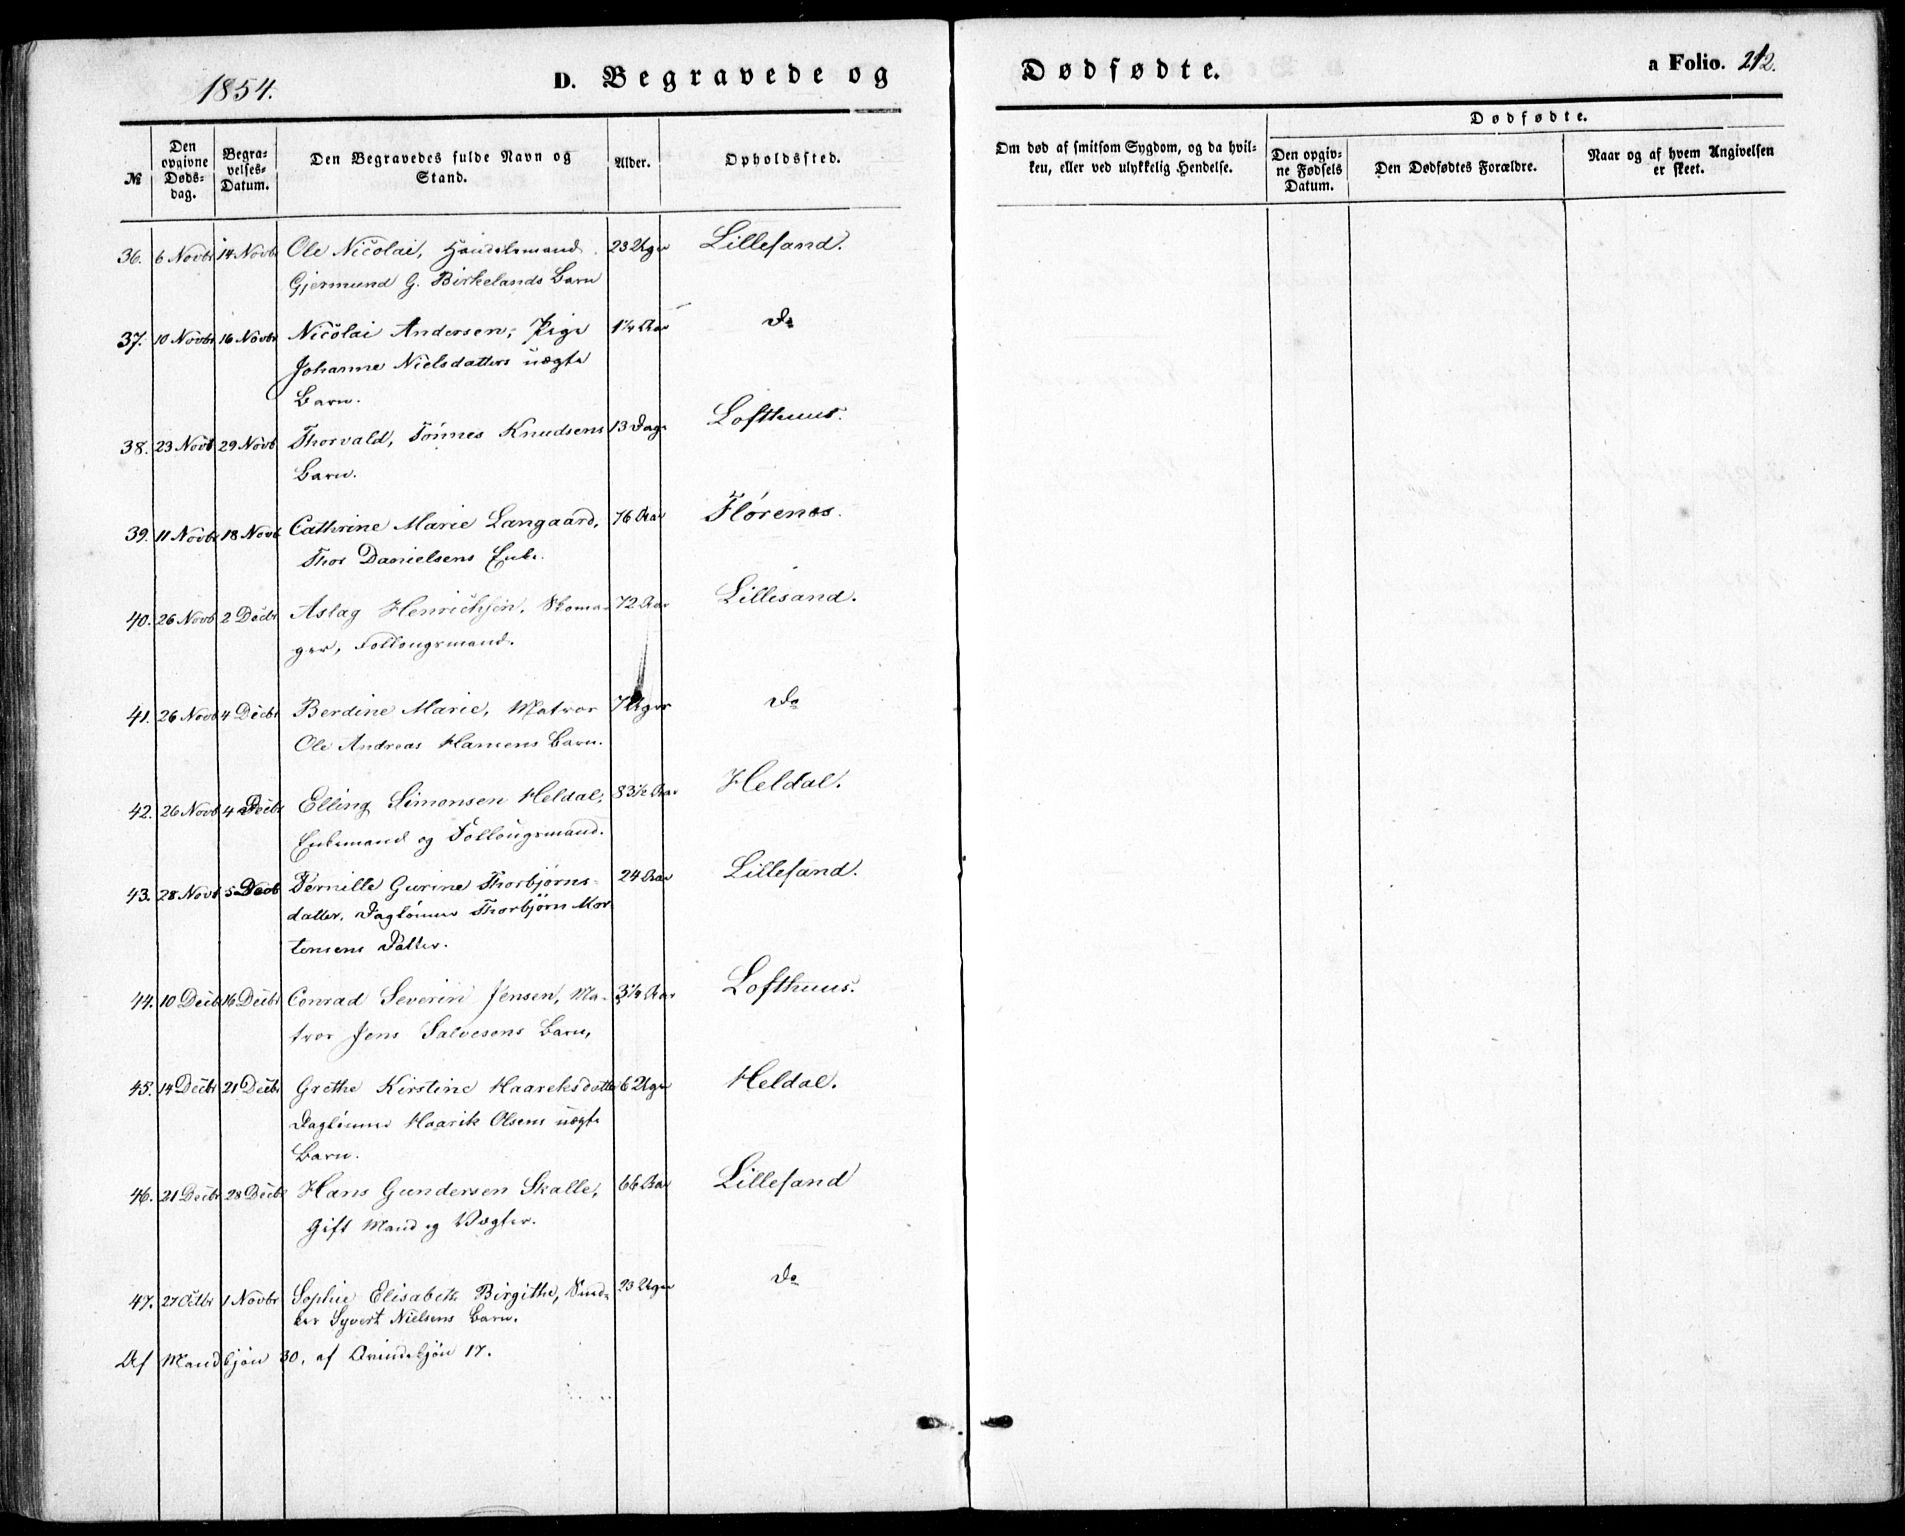 1854.
D. Begravede og
Dødfødte.
a Folio. 212.
№
Den opgivne Dødsdag.
Begravelses-Datum.
Den Begravedes fulde Navn og Stand.
Alder.
Opholdssted.
Om død af smitsom Sygdom, og da hvilken, eller ved ulykkelig Hendelse.
Dødfødte.
Den opgivne Fødsels Datum.
Den Dødfødtes Forældre.
Naar og af hvem Angivelsen er skeet.
36. 6 Novbr 14 Novbr Ole Nicolai, Handelsmand 23 Uger Lillesand.
Gjermund G. Birkelands Barn
37. 10 Novbr 16 Novbr Nicolai Andersen, Pige 1 1/4 Aar Do
Johanne Nielsdatters uægte
Barn.
38. 23 Novb 29 Novb Thorvald, Tønnes Knudsens 13 Dage Lofthuus.
Barn.
39. 11 Novbr 18 Novb Cathrine Marie Langaard, 76 Aar Flørenæs.
Thor Danielsens Enke.
40. 26 Novb 2 Decbr Aslag Henrichsen, Skoma- 72 Aar Lillesand.
ger, Follougsmand.
41. 26 Novb 4 Decbr Berdine Marie, Matros 7 Uger Do
Ole Andreas Hansens Barn.
42. 26 Novb 4 Decbr Elling Simonsen Heldal, 83 1/2 Aar Heldal.
Enkemand og Follougsmand.
43. 28 Novb 5 Decb Pernille Gurine Thorbjørns- 24 Aar Lillesand.
datter, Daglønner Thorbjørn Mor-
tensens Datter.
44. 10 Decb 16 Decbr Conrad Severin Jensen, Ma- 3 1/4 Aar Lofthuus.
tros Jens Salvesens Barn,
45. 14 Decbr 21 Decbr Grethe Kirstine Haareksdatter 6 Uger Heldal.
Daglønner Haarik Olsens uægte
Barn.
46. 21 Decbr 28 Decbr Hans Gundersen Skalle, 66 Aar Lillesand
Gift Mand og Vægter.
47. 27 Octbr 1 Novbr Sophie Elisabeth Birgithe, Sned- 23 Uger Do
ker Syvert Nielsens Barn.
Af Mandkjøn 30, af Qvindekjøn 17.